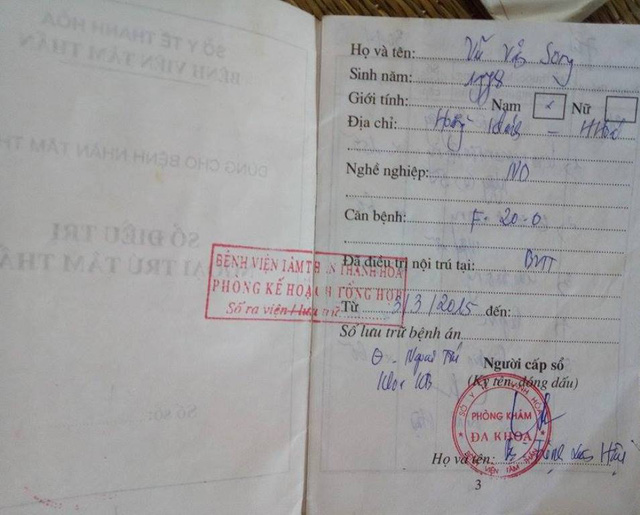 SỞ Y TẾ THANH HÓA
BỆNH VIỆN TÂM THẦN
DÙNG CHO BỆNH NHÂN TÂM TH
SỔ ĐIỀU TRỊ
NGOẠI TRÚ TÂM THẦ
SỐ:
Họ và tên: Vũ Văn Song
Sinh năm:
Giới tính: Nam Nữ
Địa chỉ: Hoằng - HHoá
Nghề nghiệp:
Căn bệnh: F-20-0
Đã điều trị nội trú tại: BVTT
BỆNH VIỆN TÂM THẦN THANH HÓA
PHÒNG KẾ HOẠCH TỔNG HỢP
Số ra viện/lưu trữ
Từ 3/3/2015 đến:
Số lưu trữ bệnh án
Θ - Ngoại Trú
Khoa KB
Người cấp sổ
(Ký tên, đóng dấu)
SỞ Y TẾ THANH HÓA
PHÒNG KHÁM
ĐA KHOA
BỆNH VIỆN TÂM THẦN
Họ và tên:
3